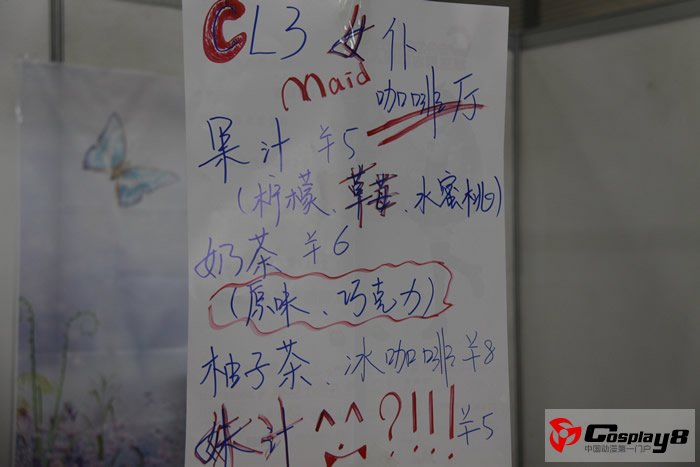 CL3 女仆
maid 咖啡厅
果汁 ¥5
(柠檬、草莓、水蜜桃)
奶茶 ¥6
(原味、巧克力)
柚子茶、冰咖啡 ¥8
妹汁 ^^?!!! ¥5
Cosplay8
中国动漫第一门户